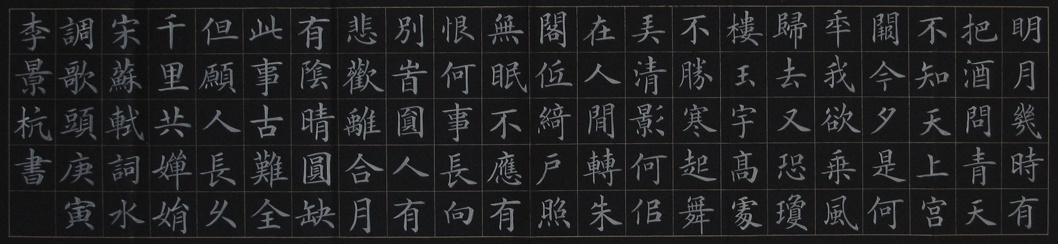 明月幾時有
把酒問青天
不知天上宮
闕今夕是何
年我欲乗風
歸去又恐瓊
樓玉宇高處
不勝寒起舞
弄清影何佀
在人間轉朱
閣低綺戶照
無眠不應有
恨何事長向
別旹圓人有
悲歡離合月
有陰晴圓缺
此事古難全
但願人長久
千里共嬋娟
宋蘇軾詞水
調歌頭庚寅
李景杭書